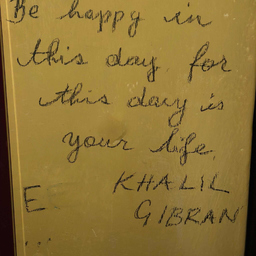 Be happy in
this day for
this day is
your life.
KHALIL
E GIBRAN
...